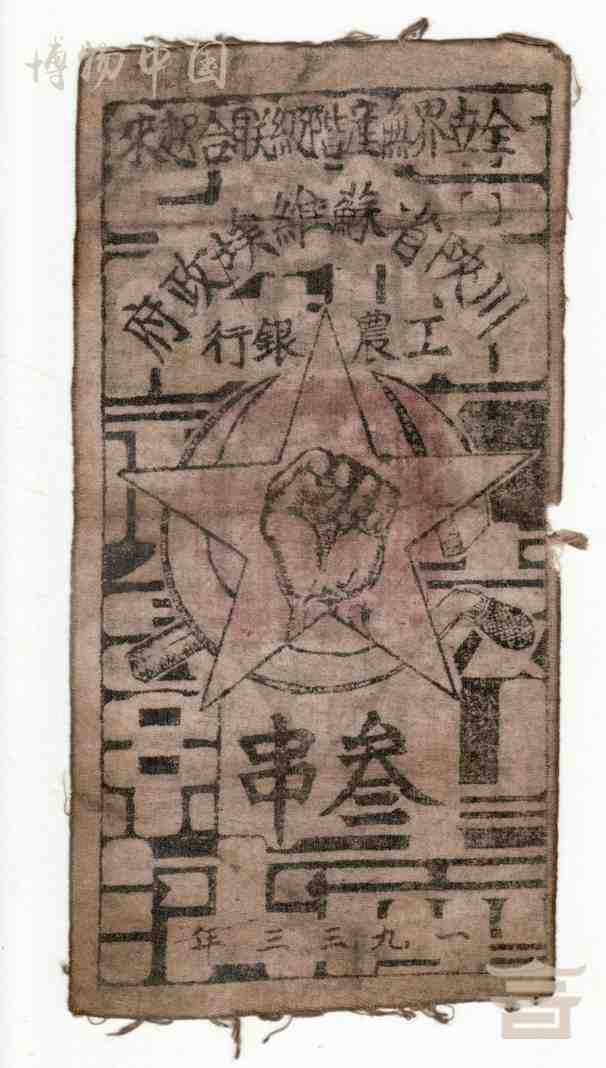 博物中国
全世界無產階級联合起來
川陝省蘇維埃政府
工農銀行
叁串
一九三三年